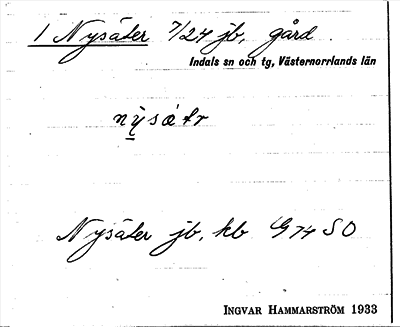 1 Nysäter 7/24 jb, gård.
Indals sn och tg, Västernorrlands län
nỳsátr
Nysäter jb, kb G 74 SO
INGVAR HAMMARSTRÖM 1933